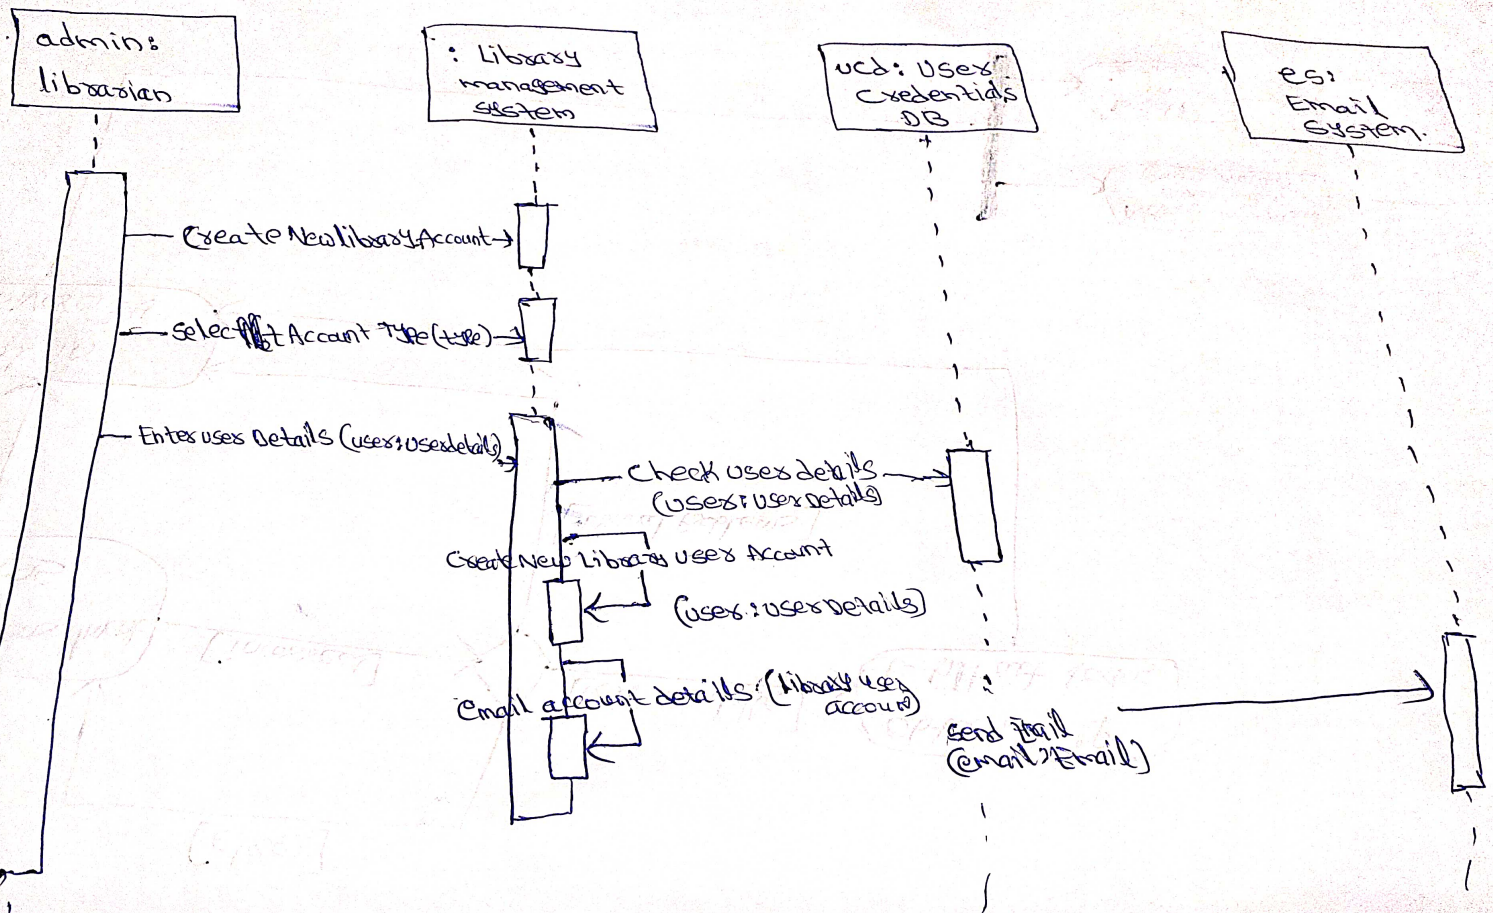 admin:
librarian
: Library
management
system
ucd: User
Credentials
DB
es:
Email
System.
Create New library Account
Select Account Type (type)
Enter user Details (user: userdetails)
Check user details
(user: user Details)
Create New Library user Account
(user: user Details)
email account details: (Library user
account)
send Email
(email: Email)